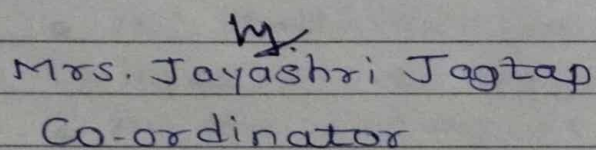 Mrs. Jayashri Jagtap
Co-ordinator